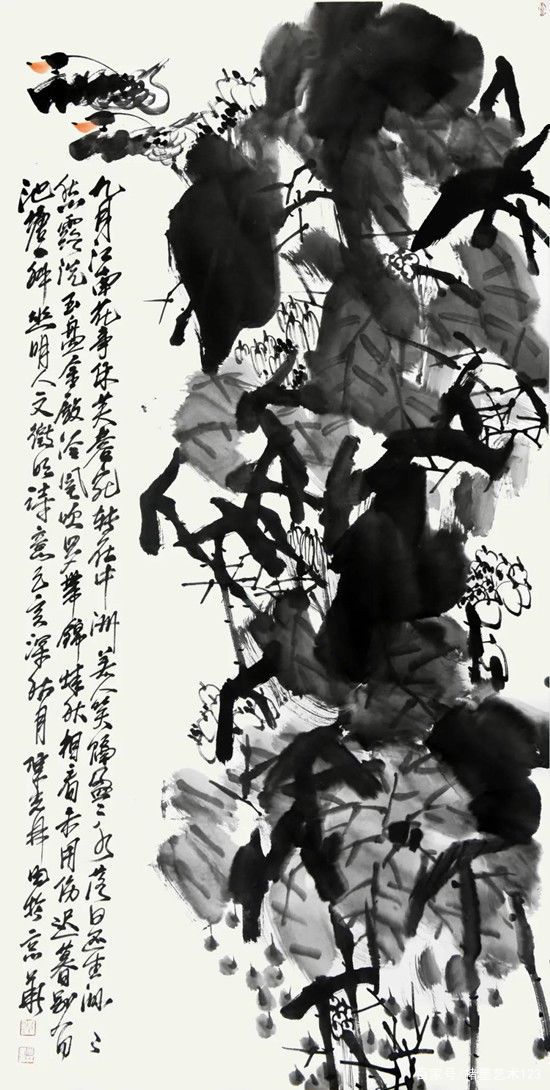 九月江南花事休芙蓉宛转在中洲美人笑隔盈〻水落日还生渺〻
愁露洗玉盘金殿冷风吹罗带锦城秋相看未用伤迟暮别有
池塘一种幽明人文徵明诗意深秋月画於京華
百家号/艺术123